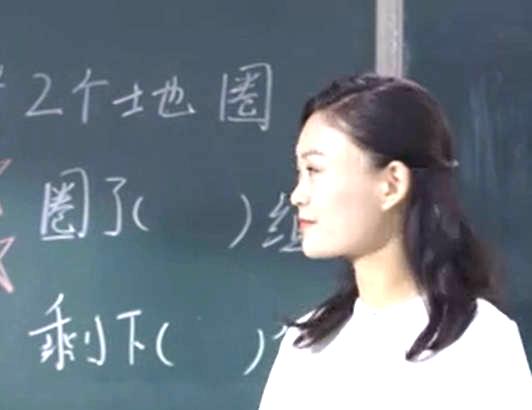 2个地圈
圈了(    )组
剩下(    )